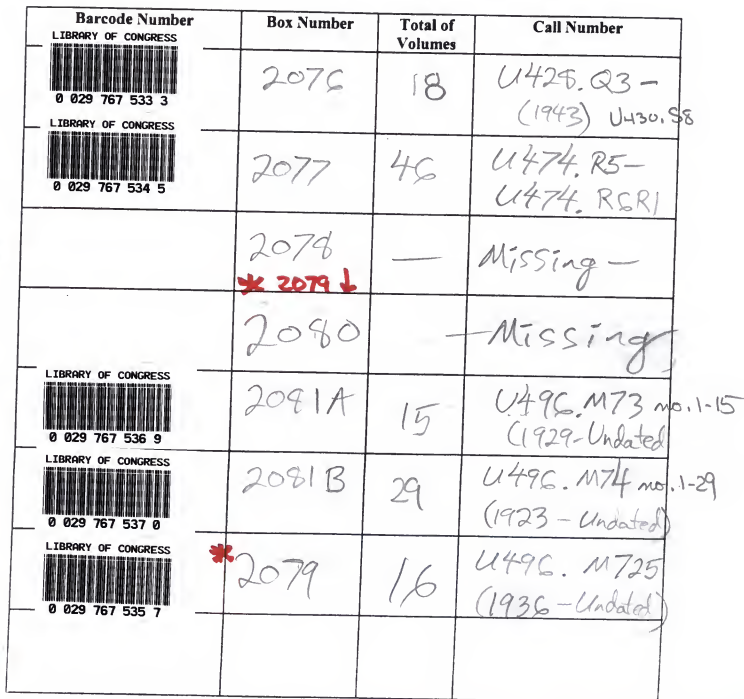 Barcode Number Box Number Total of Volumes Call Number
LIBRARY OF CONGRESS
0 029 767 533 3
2076 18 U428.Q3-
(1943) U430.S8
LIBRARY OF CONGRESS
0 029 767 534 5
2077 46 U474.R5-
U474.R6R1
2078 — Missing —
* 2079 ↓
2080 — Missing
LIBRARY OF CONGRESS
0 029 767 536 9
2081A 15 U496.M73 no.1-15
(1929-Undated
LIBRARY OF CONGRESS
0 029 767 537 0
2081B 29 U496.M74 no.1-29
(1923-Undated)
LIBRARY OF CONGRESS
0 029 767 535 7
* 2079 16 U496.M725
(1936-Undated)